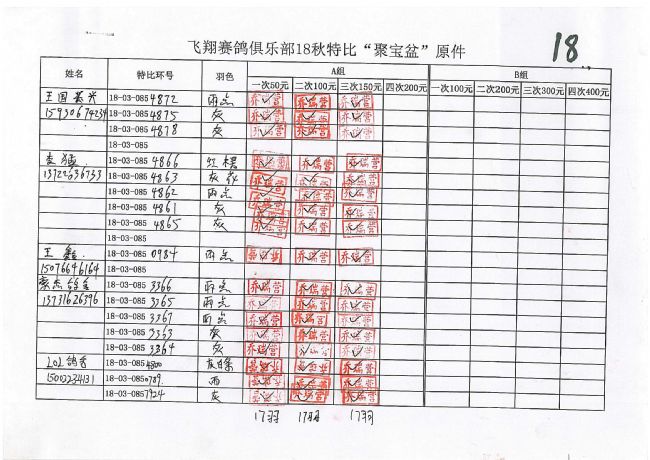 飞翔赛鸽俱乐部18秋特比“聚宝盆”原件
18
姓名 特比环号 羽色 A组 B组
一次50元 二次100元 三次150元 四次200元 一次100元 二次200元 三次300元 四次400元
王国 18-03-085 4872 雨点 乔瑞营 乔瑞营 乔瑞营
15930674234 18-03-085 4875 灰 乔瑞营 乔瑞营 乔瑞营
18-03-085 4878 灰 乔瑞营 乔瑞营 乔瑞营
18-03-085
李 18-03-085 4866 红 乔瑞营 乔瑞营 乔瑞营
13722636733 18-03-085 4863 灰花 乔瑞营 乔瑞营 乔瑞营
18-03-085 4862 雨点 乔瑞营 乔瑞营 乔瑞营
18-03-085 4861 灰 乔瑞营 乔瑞营 乔瑞营
18-03-085 4865 灰 乔瑞营 乔瑞营 乔瑞营
18-03-085
王鑫 18-03-085 0984 雨点 乔瑞营 乔瑞营
15076646164 18-03-085
18-03-085 3366 雨点 乔瑞营 乔瑞营 乔瑞营
13731626396 18-03-085 3365 雨点 乔瑞营 乔瑞营 乔瑞营
18-03-085 3367 雨点 乔瑞营 乔瑞营 乔瑞营
18-03-085 3363 灰 乔瑞营 乔瑞营 乔瑞营
18-03-085 3364 灰 乔瑞营 乔瑞营
LOL鸽舍 18-03-085 4800 灰白条 乔瑞营
15002234131 18-03-085 0789 雨 乔瑞营
18-03-085 7924 灰 乔瑞营 乔瑞营
17羽 17羽 17羽